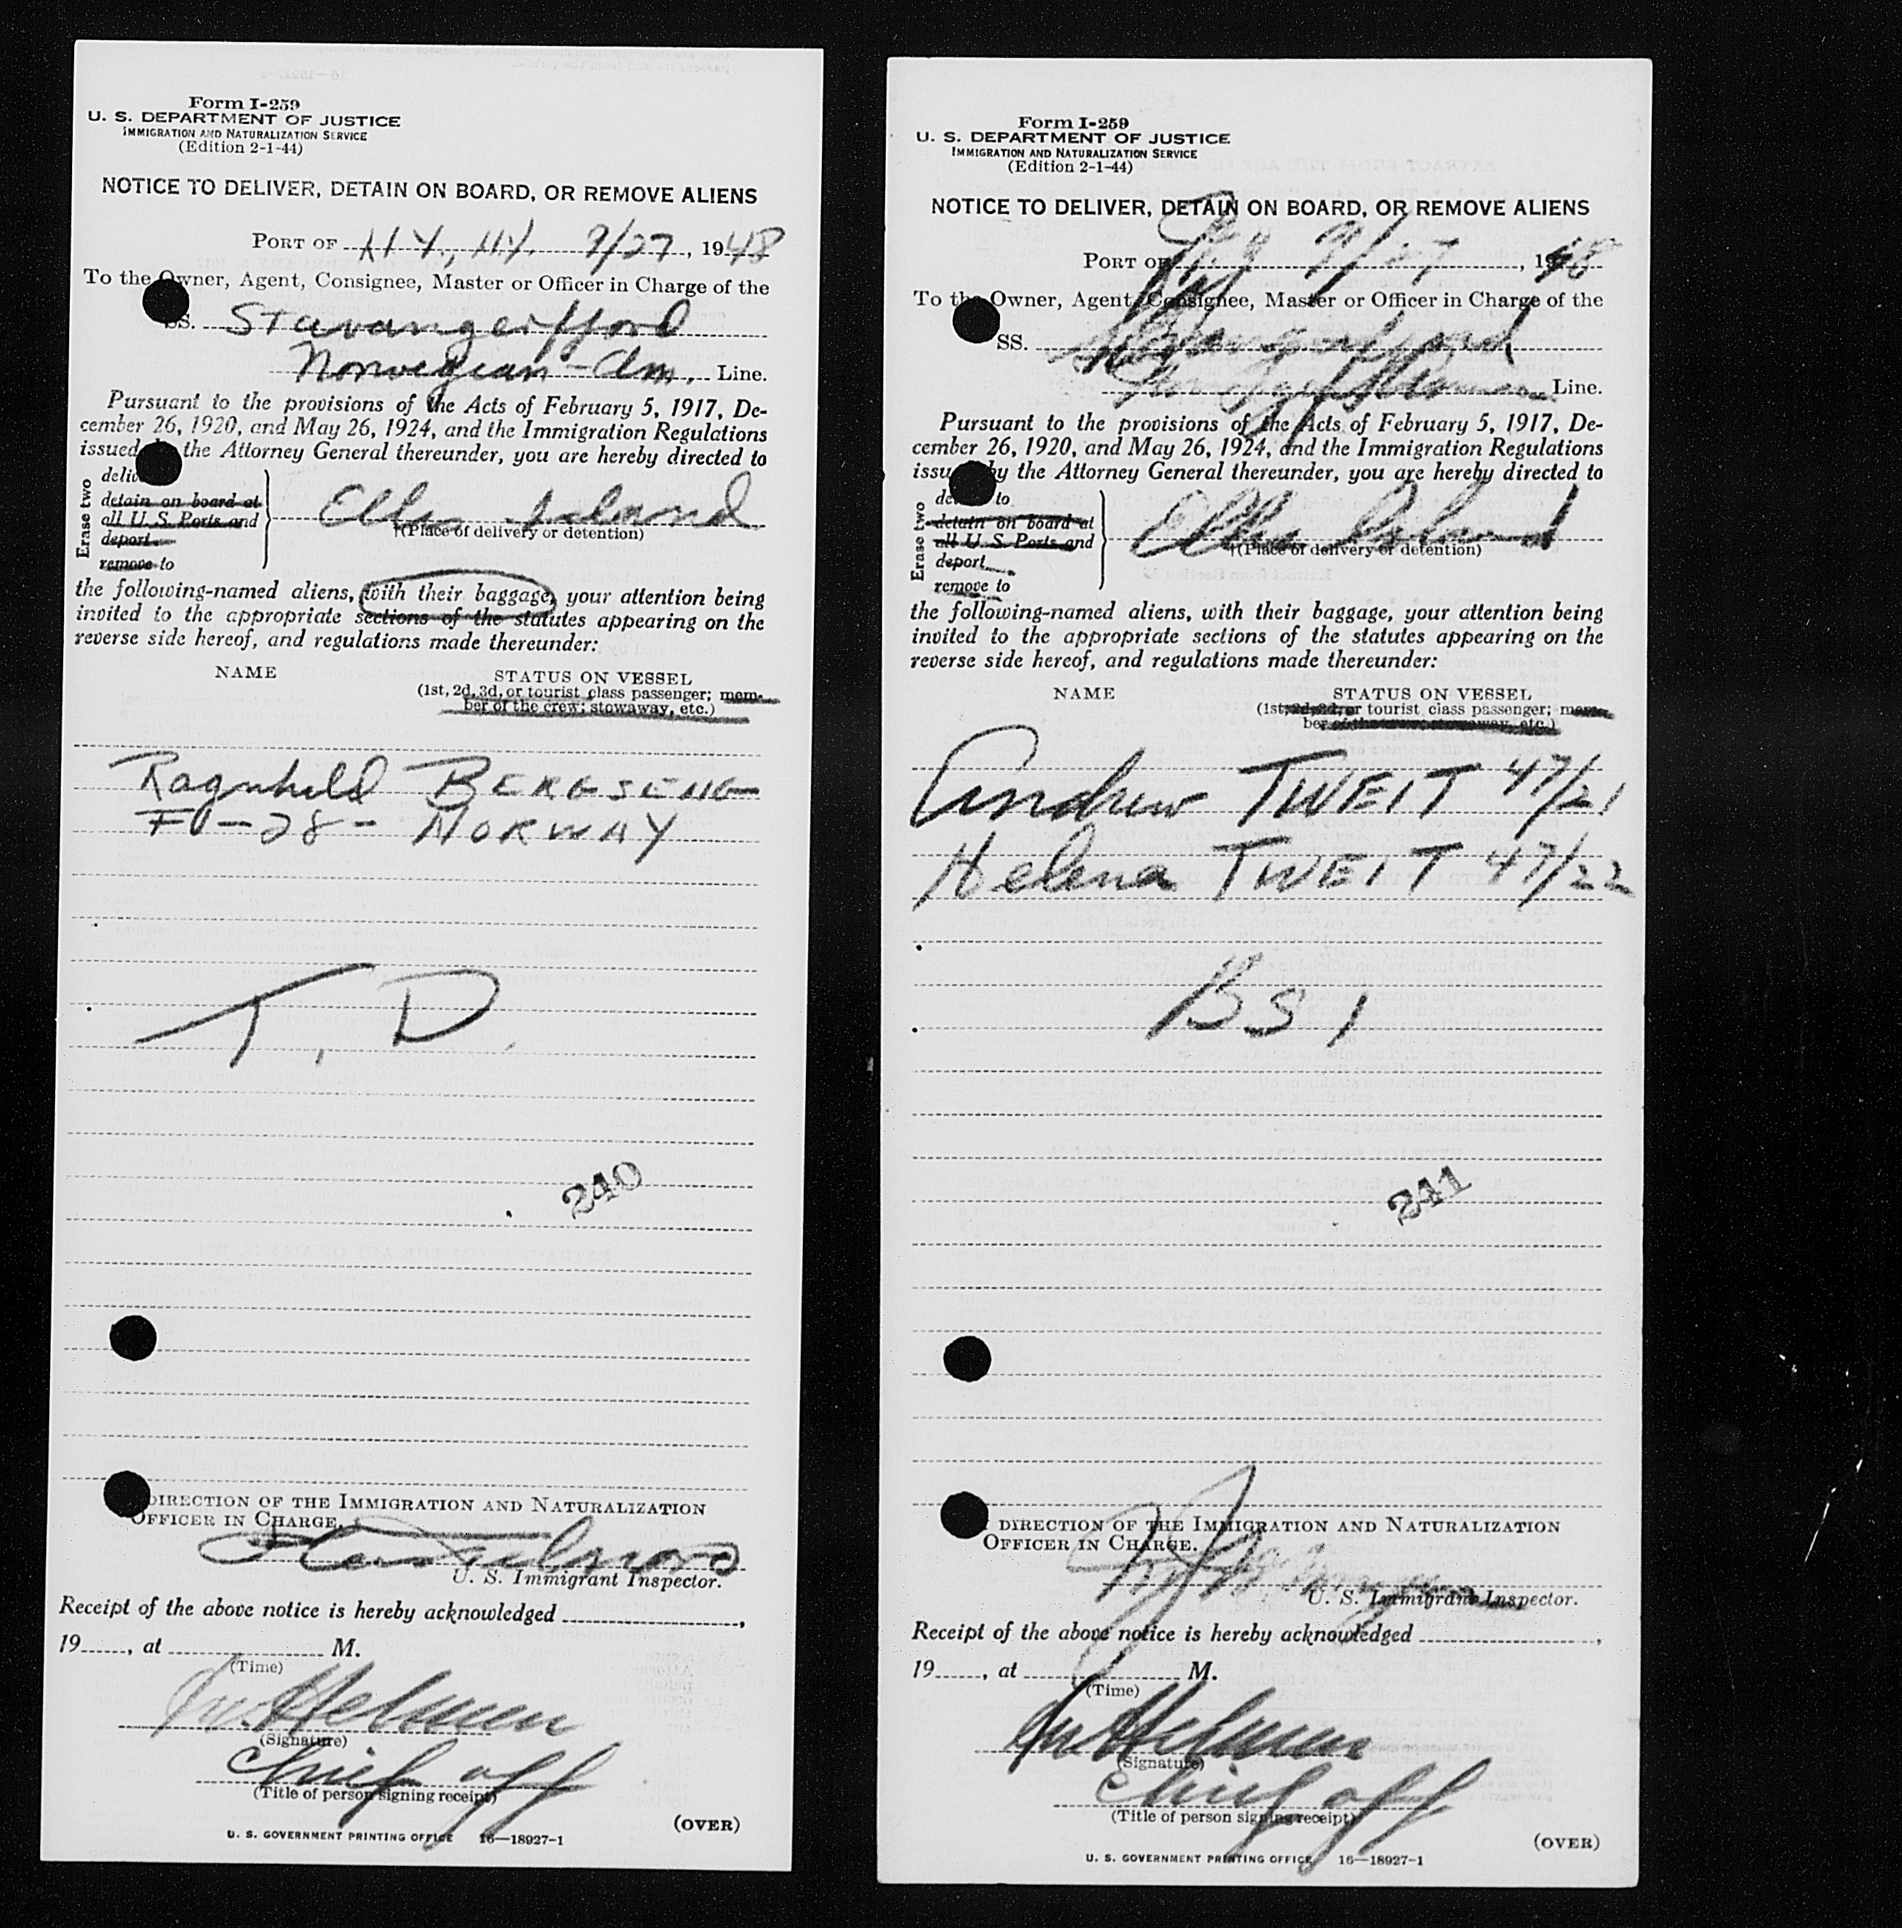 Form I-259
U. S. DEPARTMENT OF JUSTICE
IMMIGRATION AND NATURALIZATION SERVICE
(Edition 2-1-44)
NOTICE TO DELIVER, DETAIN ON BOARD, OR REMOVE ALIENS
PORT OF N.Y., N.Y. 9/27, 1948
To the Owner, Agent, Consignee, Master or Officer in Charge of the
SS. Stavangerfjord
Norwegian-Am. Line.
Pursuant to the provisions of the Acts of February 5, 1917, De-
cember 26, 1920, and May 26, 1924, and the Immigration Regulations
issued the Attorney General thereunder, you are hereby directed to
Erase two
detain on board at
all U. S. Ports and
deport
remove to
Ellis Island
†(Place of delivery or detention)
the following-named aliens, with their baggage, your attention being
invited to the appropriate sections of the statutes appearing on the
reverse side hereof, and regulations made thereunder:
NAME STATUS ON VESSEL
(1st, 2d, 3d, or tourist class passenger; mem-
ber of the crew; stowaway, etc.)
Ragnhild BERGSENG
28 - NORWAY
T. D.
240
DIRECTION OF THE IMMIGRATION AND NATURALIZATION
OFFICER IN CHARGE.
U. S. Immigrant Inspector.
Receipt of the above notice is hereby acknowledged ,
19 , at M.
(Time)
(Signature)
Chief off
(Title of person signing receipt)
(OVER)
U. S. GOVERNMENT PRINTING OFFICE 16—18927-1
Form I-259
U. S. DEPARTMENT OF JUSTICE
IMMIGRATION AND NATURALIZATION SERVICE
(Edition 2-1-44)
NOTICE TO DELIVER, DETAIN ON BOARD, OR REMOVE ALIENS
PORT OF N.Y. 9/27, 1948
To the Owner, Agent, Consignee, Master or Officer in Charge of the
SS. Stavangerfjord
Line.
Pursuant to the provisions of the Acts of February 5, 1917, De-
cember 26, 1920, and May 26, 1924, and the Immigration Regulations
by the Attorney General thereunder, you are hereby directed to
Erase two
to
detain on board at
all U. S. Ports and
deport
remove to
Ellis Island
†(Place of delivery or detention)
the following-named aliens, with their baggage, your attention being
invited to the appropriate sections of the statutes appearing on the
reverse side hereof, and regulations made thereunder:
NAME STATUS ON VESSEL
(1st, 2d, 3d, or tourist class passenger; mem-
ber of the crew; stowaway, etc.)
Andrew TWEIT 47/21
Helena TWEIT 47/22
BSI
241
DIRECTION OF THE IMMIGRATION AND NATURALIZATION
OFFICER IN CHARGE.
U. S. Immigrant Inspector.
Receipt of the above notice is hereby acknowledged ,
19 , at M.
(Time)
(Signature)
Chief off
(Title of person signing receipt)
(OVER)
U. S. GOVERNMENT PRINTING OFFICE 16—18927-1